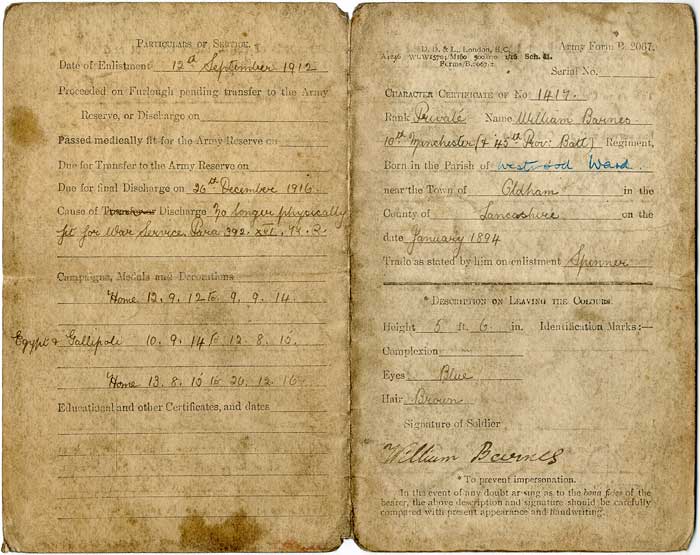 PARTICULARS OF SERVICE.
Date of Enlistment 12th September 1912
Proceeded on Furlough pending transfer to the Army
Reserve, or Discharge on
Passed medically fit for the Army Reserve on
Due for Transfer to the Army Reserve on
Due for final Discharge on 26th December 1916.
Cause of Transfer or Discharge No longer physically
fit for War Service. Para 392. XVI. K. R.
Campaigns, Medals and Decorations
Home 12. 9. 12 to 9. 9. 14.
Egypt & Gallipoli 10. 9. 14 to 12. 8. 15.
Home 13. 8. 15 to 26. 12. 16
Educational and other Certificates, and dates
D. D. & L., London, E.C.
Sch. 41.
Forms/B.2067.2
Army Form B. 2067.
Serial No.
CHARACTER CERTIFICATE OF No 1417.
Rank Private Name William Barnes
10th Manchester (& 45th Prov: Batt) Regiment,
Born in the Parish of Westwood Ward.
near the Town of Oldham in the
County of Lancashire on the
date January 1894
Trade as stated by him on enlistment Spinner
*DESCRIPTION ON LEAVING THE COLOURS.
Height 5 ft. 6 in. Identification Marks:—
Complexion
Eyes Blue
Hair Brown
Signature of Soldier
William Barnes
*To prevent impersonation.
In the event of any doubt arising as to the bona fides of the
bearer, the above description and signature should be carefully
compared with present appearance and handwriting.